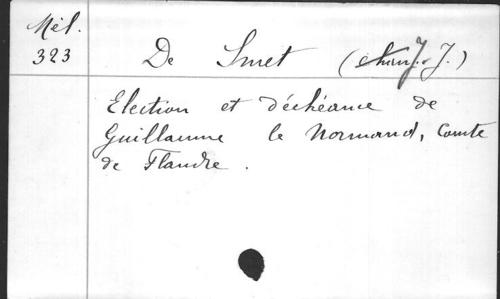 Mél.
323
De Smet (J. J.)
Election et déchéance de
Guillaume le Normand, Comte
de Flandre.